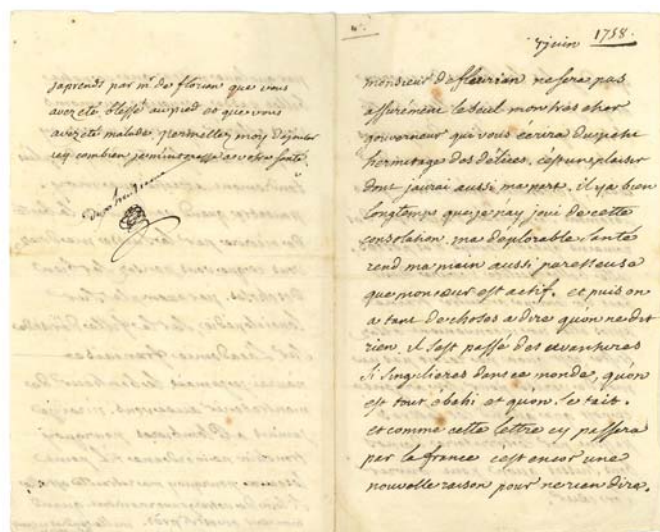 japrends par mr de florian que vous
avez eté blessé au pied et que vous
avez eté malade, permettez moy d'ajouter
icy combien je minteresse a votre santé.
7 juin 1758.
monsieur de fleurian ne sera pas
assurément le seul mon très cher
gouverneur qui vous écrira du petit
hermitage des délices. c'est un plaisir
dont jaurai aussi ma part. il y a bien
longtemps que je n'ay joui de cette
consolation. ma déplorable santé
rend ma main aussi paresseuse
que mon cœur est actif. et puis on
a tant de choses a dire quon ne dit
rien. il s'est passé des avantures
si singulieres dans ce monde, qu'on
est tout ébahi et qu'on se tait.
et comme cette lettre cy passera
par la france c'est encor une
nouvelle raison pour ne rien dire.